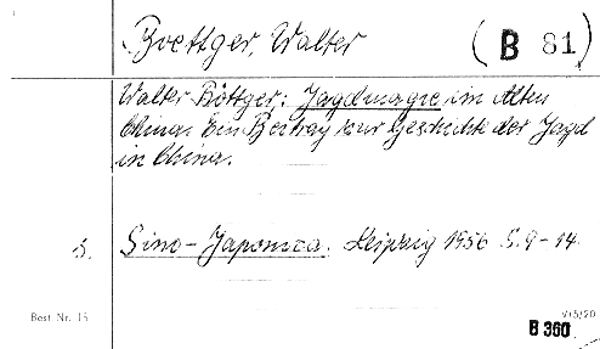 Boettger, Walter (B 81)
Walter Böttger: Jagdmagie im Alten
China. Ein Beitrag zur Geschichte der Jagd
in China.
s. Sino-Japonica. Leipzig 1956 S. 9-14.
Best. Nr. 15 V/5/20
B 360